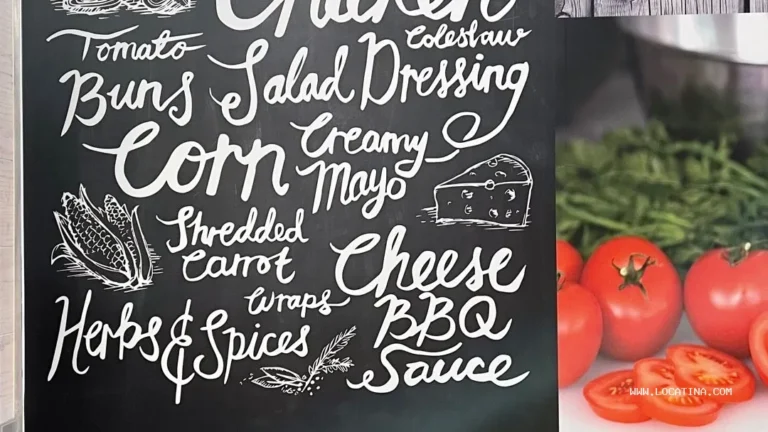 Chicken
Tomato
Coleslaw
Buns Salad Dressing
Corn Creamy
Mayo
Shredded
Carrot
Cheese
Wraps
BBQ
Herbs & Spices
Sauce
WWW.LOCATINA.COM